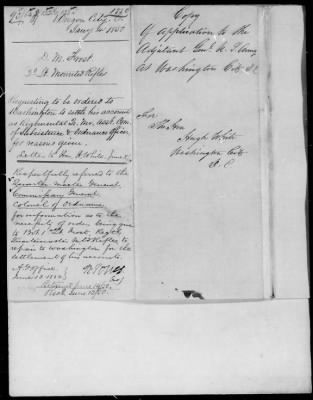 1850
Oregon City, O.T.
Jany 10 1850
D. M. Frost
2d Lt Mounted Rifles
Requesting to be ordered to
Washington to settle his accounts
as Regimental Qr. Mr. Asst. Com.
of Subsistence & Ordnance officer
for reasons given.
Letter to Hon. H. White June
Respectfully referred to the
Quarter Master General,
Commissary General
Colonel of Ordnance
for information as to the
necessity of orders being given
to Bvt 1st Lt Frost, Regtl
Quartermaster Mtd Rifles to
repair to Washington for the
settlement of his accounts.
A. G. Office
June 10 1850
Returned June 14/50
Recd. June 12/50
Copy
Of application to the
Adjutant Genl. U. S. Army
at Washington City D.C
For
The Hon
Hugh White
Washington City
D. C